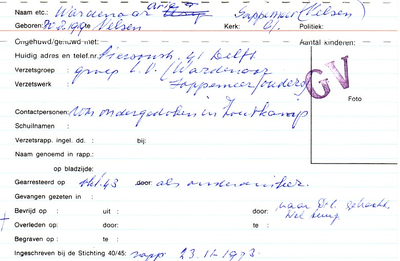 Naam etc.: Wardenaar Sappemeer (Velsen)
Geboren: te Velsen Kerk: Politiek:
Ongehuwd/gehuwd met: Aantal kinderen:
Huidig adres en telef.nr. 41 Delft
Verzetsgroep : groep L.O. (Wardenaar
Verzetswerk : Sappemeer/
GV
Foto
Contactpersonen: was ondergedoken in Zoutkamp
Schuilnaam :
Verzetsrapp. ingel. dd. : bij:
Naam genoemd in rapp.:
op bladzijde:
Gearresteerd op : okt. 43 door: als onderduiker.
Gevangen gezeten in :
Bevrijd op : uit : door: naar Dl. gebracht.
Overleden op: te : door: Wel terug
Begraven op : te :
Ingeschreven bij de Stichting 40/45: rapp 23.11-1993.